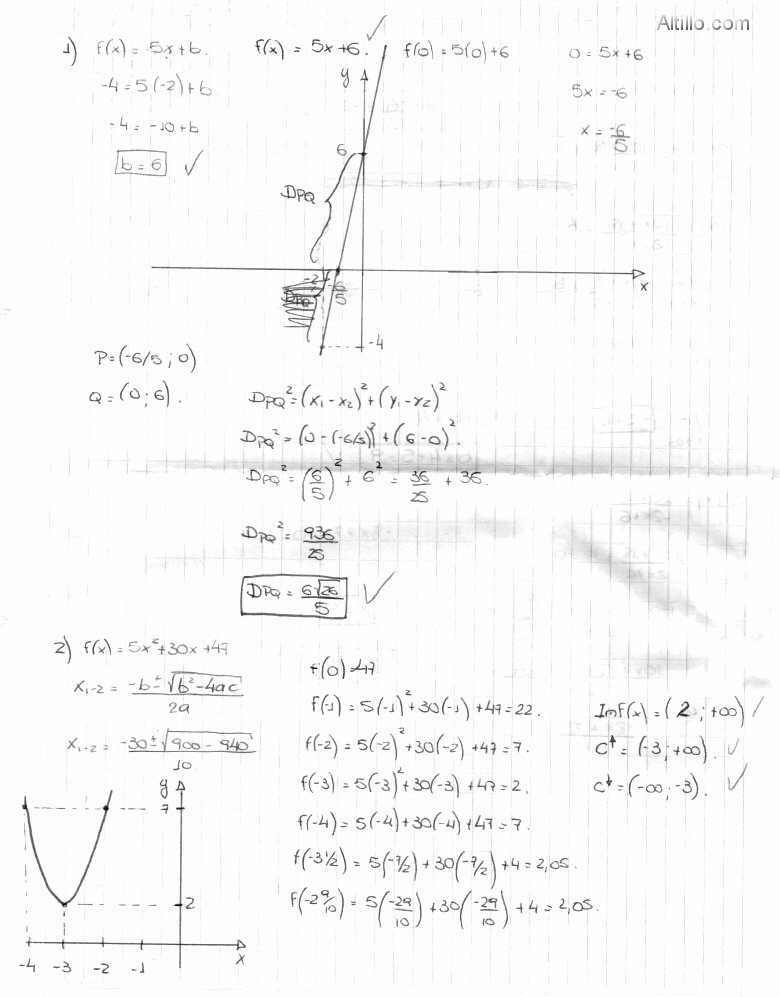 Altillo.com
1) f(x) = 5x+b.
-4 = 5(-2)+b
-4 = -10+b
b = 6 ✓
f(x) = 5x+6. ✓
f(0) = 5(0)+6
0 = 5x+6
5x = -6
x = -6/5
y
6
DPQ
-2
-6/5
x
DPQ
-4
P = (-6/5 ; 0)
Q = (0 ; 6).
DPQ² = (x₁-x₂)² + (y₁-y₂)²
DPQ² = (0-(-6/5))² + (6-0)².
DPQ² = (6/5)² + 6² = 36/25 + 36.
DPQ² = 936/25
DPQ = 6√26/5 ✓
2) f(x) = 5x²+30x+47
x₁₋₂ = -b±√b²-4ac/2a
x₁₋₂ = -30±√900-940/10
y
7
2
-4 -3 -2 -1 x
f(0)=47
f(-1) = 5(-1)²+30(-1)+47=22.
f(-2) = 5(-2)²+30(-2)+47=7.
f(-3) = 5(-3)²+30(-3)+47=2.
f(-4) = 5(-4)+30(-4)+47=7.
f(-3 1/2) = 5(-7/2)+30(-7/2)+4=2,05.
f(-2 9/10) = 5(-29/10)+30(-29/10)+4=2,05.
Imf(x) = (2 ; +∞) ✓
C↑ = (-3 ; +∞). ✓
C↓ = (-∞ ; -3). ✓